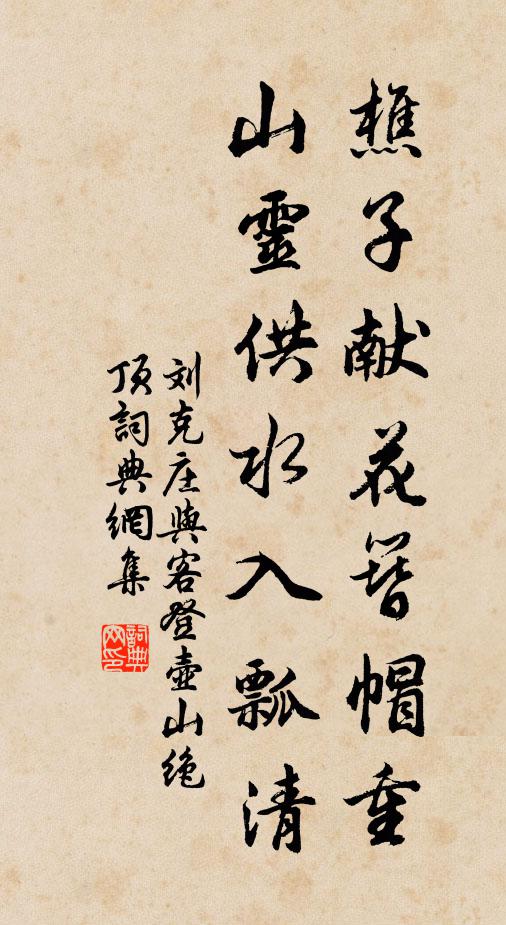 樵子献花簪帽重
山靈供水入瓢清
刘克庄與客登壺山绝
頂詞典網集
詞典
网印